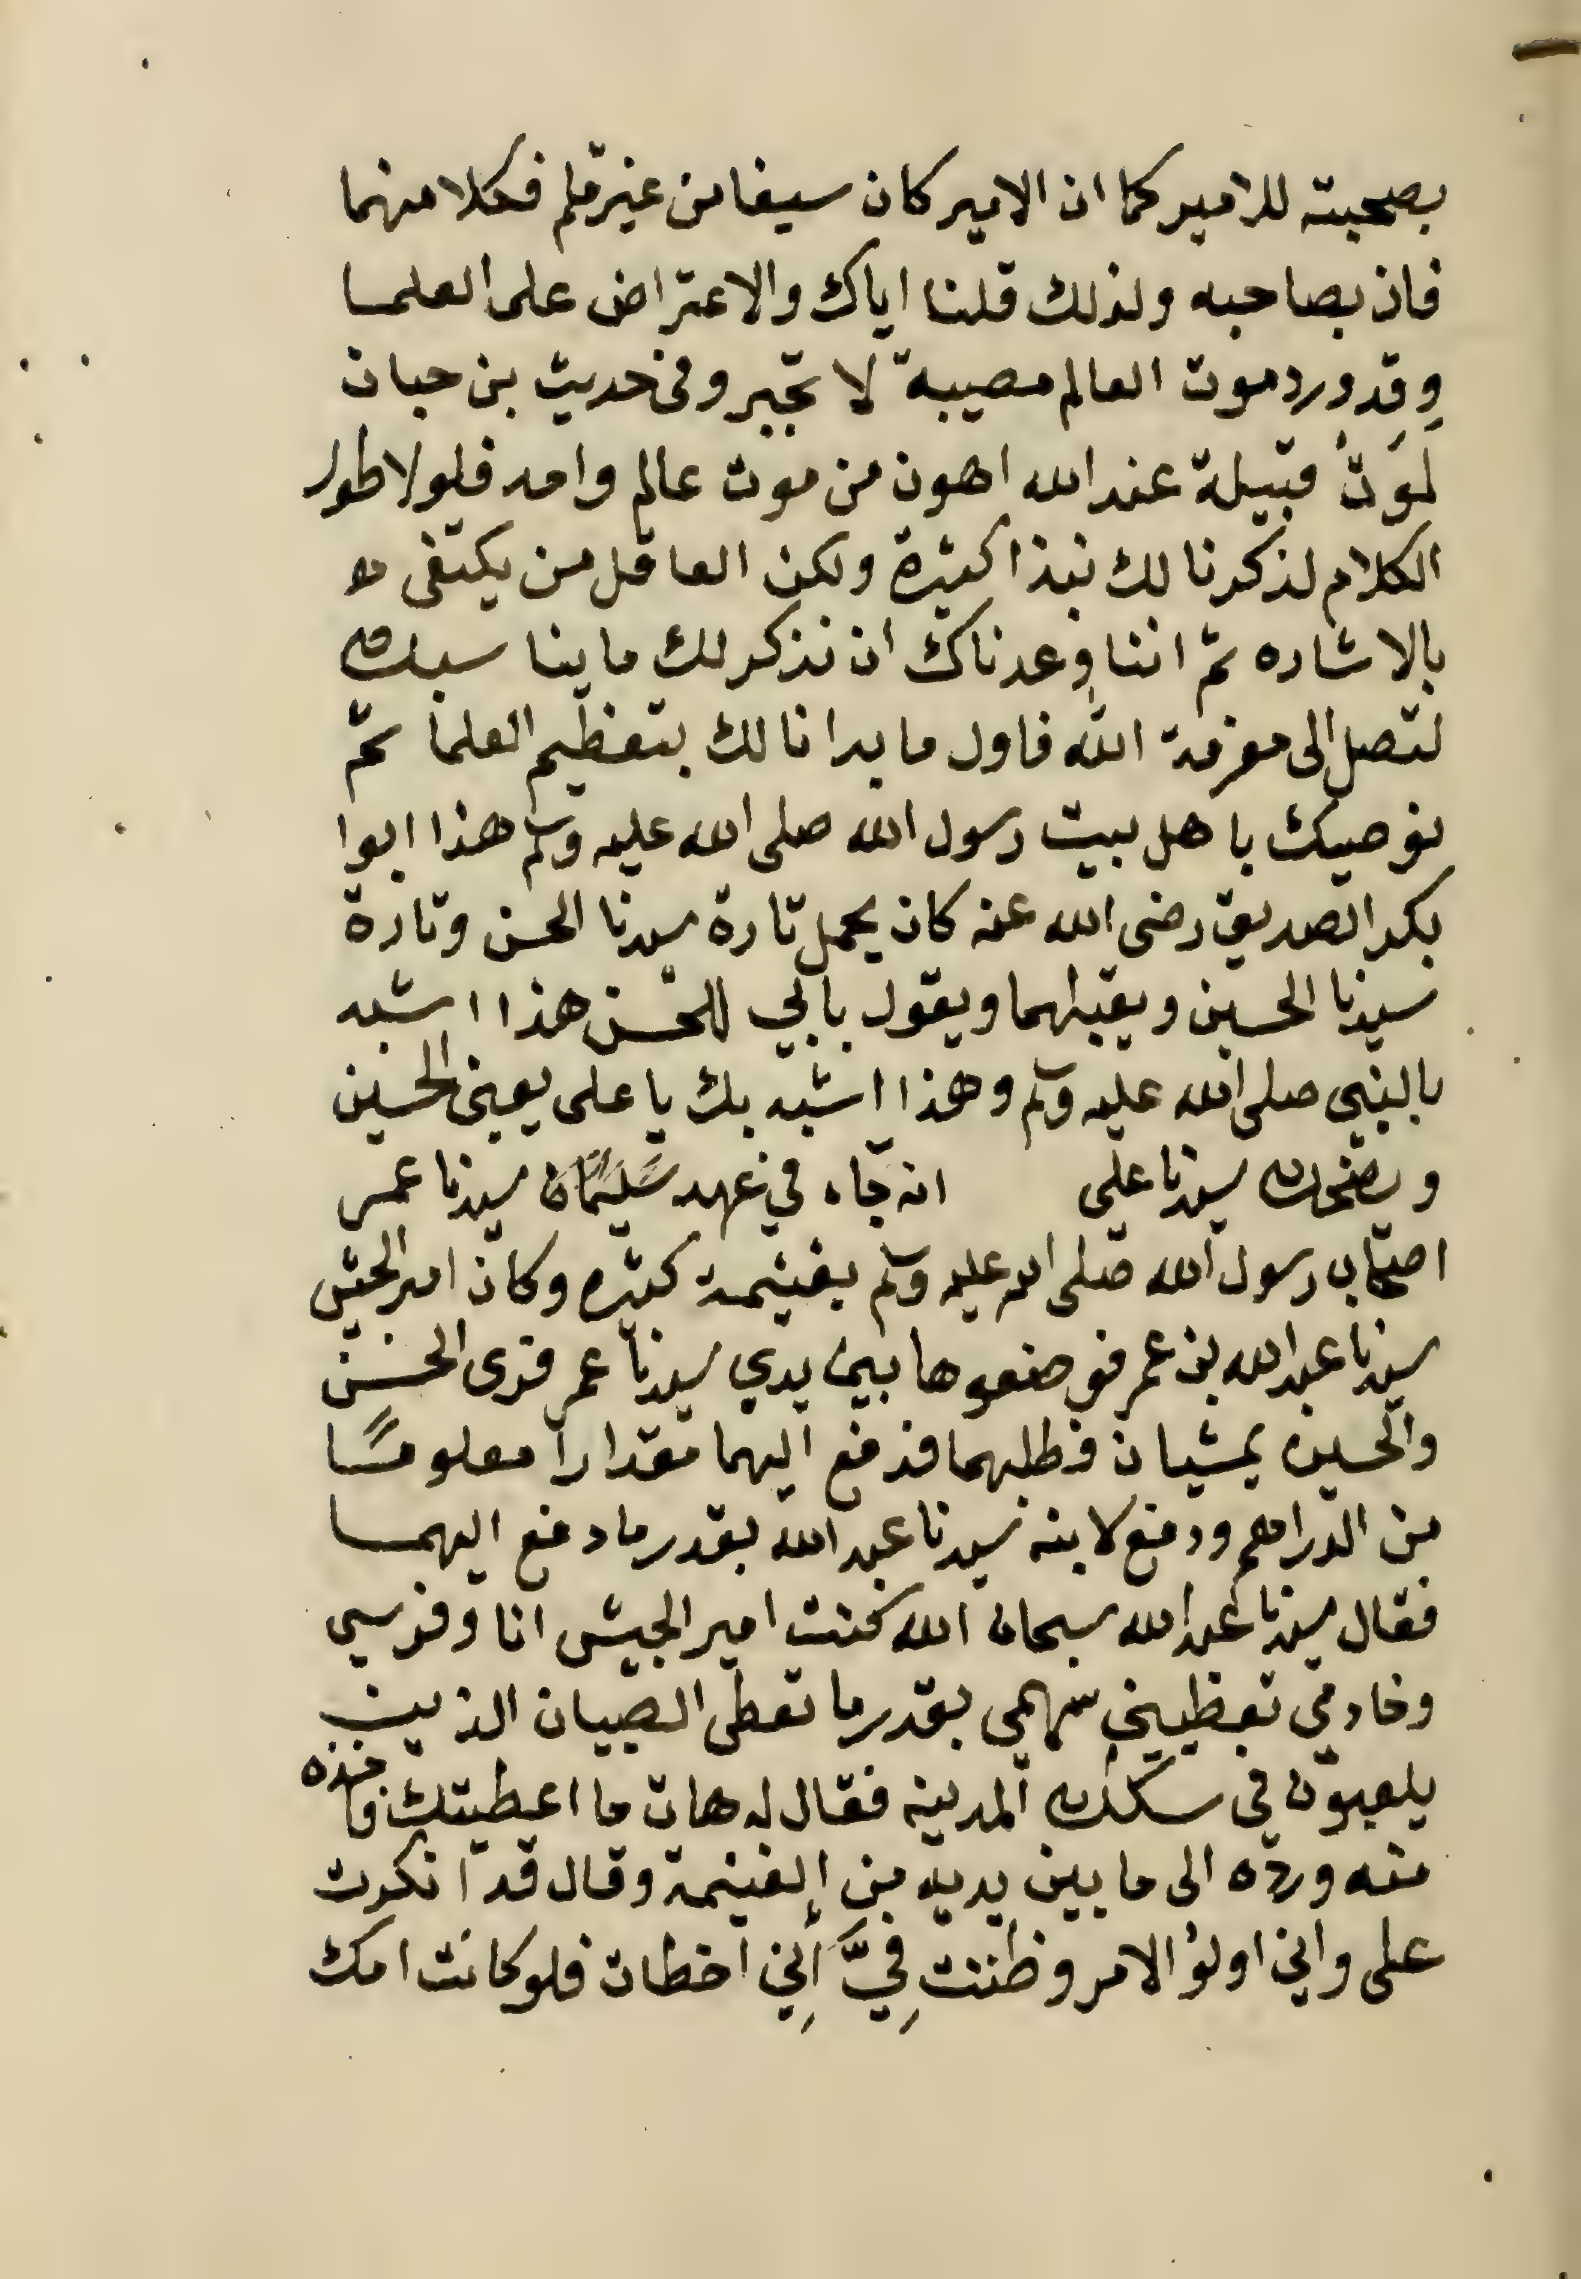 بصحبته للامير كما ان الامير كان سيفا من غير قلم فكلا منهما
فاز بصاحبه ولذلك قلنا اياك والاعتراض على العلما
وقد ورد موت العالم مصيبة لا تجبر وفى حديث بن حبان
لموت قبيلة عند الله اهون من موت عالم واحد فلولا طول
الكلام لذكرنا لك نبذا كثيرة ولكن العاقل من يكتفى
بالاشاره ثم اننا وعدناك ان نذكر لك ما يناسبك
لتصل الى معرفة الله فاول ما بدانا لك بتعظيم العلما ثم
نوصيك باهل بيت رسول الله صلى الله عليه وسلم هذا ابوا
بكر الصديق رضى الله عنه كان يحمل تارة سيدنا الحسن وتارة
سيدنا الحسين ويقبلهما ويقول بابي للحسن هذا اشبه
بالنبي صلى الله عليه وسلم وهذا اشبه بك يا على يعنى الحسين
ويضحك سيدنا على انه جاء في عهد سيدنا عمر
اصحاب رسول الله صلى الله عليه وسلم بغنيمة كثيره وكان امير الجيش
سيدنا عبد الله بن عمر فوضعوها بين يدي سيدنا عمر فرى الحسن
والحسين يمشيان فطلبهما فدفع اليهما مقدارا معلوما
من الدراهم ودفع لابنه سيدنا عبد الله بقدر ما دفع اليهما
فقال سيدنا عبد الله سبحان الله كنت امير الجيش انا وفرسي
وخادمي تعطيني سهمي بقدر ما تعطى الصبيان الذين
يلعبون في سكك المدينه فقال له هات ما اعطيتك فاخذه
منه ورده الى ما بين يديه من الغنيمة وقال قد انكرت
على واني اولوا الامر وظننت فيَّ أني اخطات فلو كانت امك